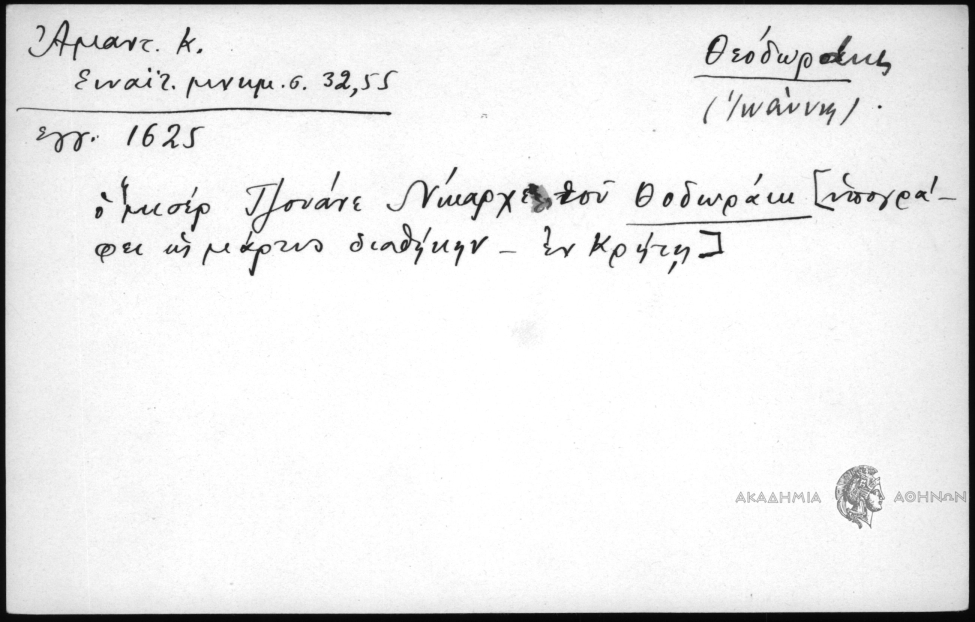 Ἀμαντ. Κ.
Σιναϊτ. μνημ. σ. 32,55
Θεόδωράκης
(Ἰωάννης).
ἔγγ. 1625
ὁ μισέρ Τζουάνε τοῦ Θοδωράκη [ὑπογρά-
φει ὡς μάρτυς διαθήκην – ἐν Κρήτῃ]
ΑΚΑΔΗΜΙΑ ΑΘΗΝΩΝ